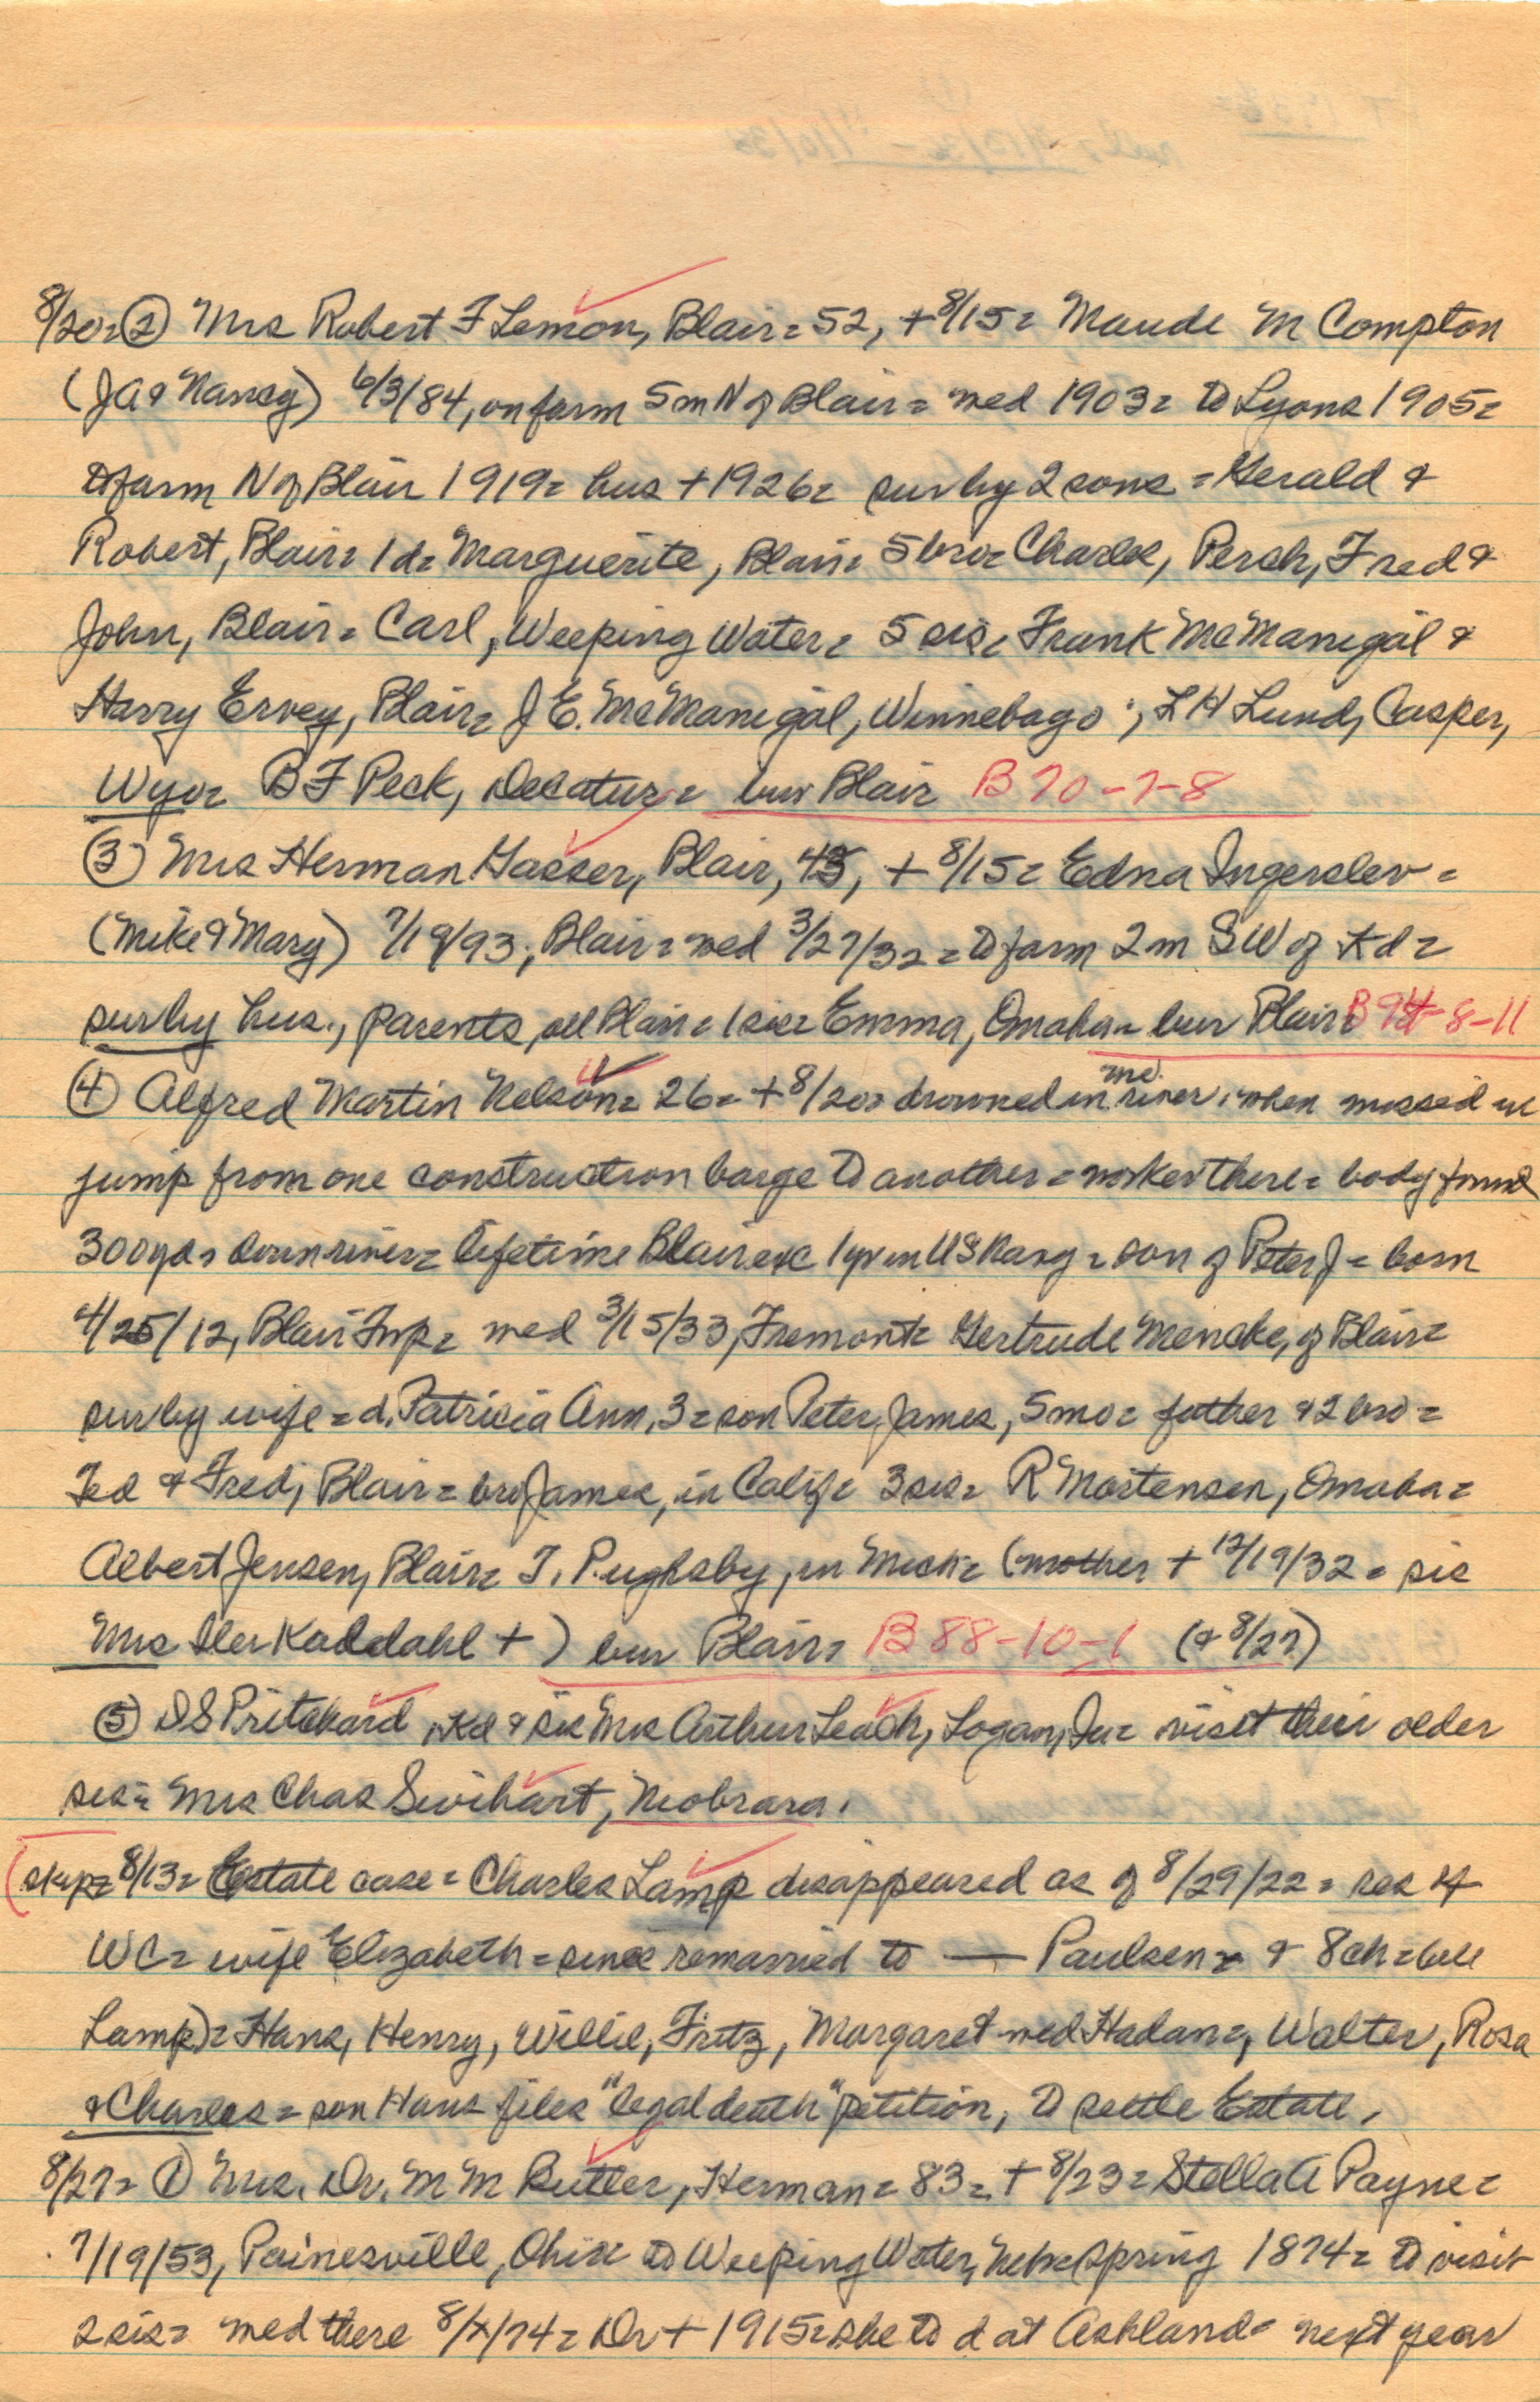 8/20= ② Mrs Robert F Lemon, Blair= 52, + 8/15= Maude M Compton
(JA & Nancy) 6/3/84, on farm 5 m N of Blair= med 1903= to Lyons 1905=
to farm N of Blair 1919= hus + 1926= sur by 2 sons = Gerald &
Robert, Blair= 1 d= Marguerite, Blair= 5 bro= Charles, Perch, Fred &
John, Blair= Carl, Weeping Water= 5 sis= Frank McManigal &
Harry Ervey, Blair= J E. McManigal, Winnebago, L H Lund, Casper,
Wyo= B F Peck, Decatur= bur Blair B 70-7-8
③ Mrs Herman Gasser, Blair, 43, + 8/15= Edna Ingerslev=
(Mike & Mary) 7/19/93, Blair= med 3/27/32= to farm 2 m SW of Kd=
sur by hus., parents, all Blair= 1 sis= Emma, Omaha= bur Blair B 94-8-11
④ Alfred Martin Nelson= 26= + 8/20= drowned in mo. river, when missed in
jump from one construction barge to another= worker there= body found
300 yds down river= lifetime Blair exc 1 yr in US Navy= son of Peter J= born
4/25/12, Blair Twp= med 3/15/33, Fremont= Gertrude Mencke, of Blair=
sur by wife= d. Patricia Ann, 3= son Peter James, 5 mo= father & 2 bro=
Ted & Fred, Blair= bro James, in Calif= 3 sis= R Mortensen, Omaha=
Albert Jensen, Blair= T. Pughsby, in Mich= (mother + 12/19/32= sis
Mrs Iler Kaddahl +) bur Blair= B 88-10-1 (& 8/27)
⑤ D S Pritchard, Kd & sis Mrs Arthur Leach, Logan, Ia= visit their older
sis= Mrs Chas Swihart, Niobrara.
(skip= 8/13= Estate case= Charles Lamp disappeared as of 8/29/22= res of
WC= wife Elizabeth= since remarried to — Paulsen= & 8 ch= (all
Lamp)= Hans, Henry, Willie, Fritz, Margaret med Hadan=, Walter, Rosa
& Charles= son Hans files "legal death" petition, to settle Estate.
8/27= ① Mrs. Dr. M M Butler, Herman= 83= + 8/23= Stella A Payne=
7/19/53, Painesville, Ohio= to Weeping Water, Nebr spring 1874= to visit
2 sis= med there 8/x/74= Dr + 1915= she to d at Ashland= next year